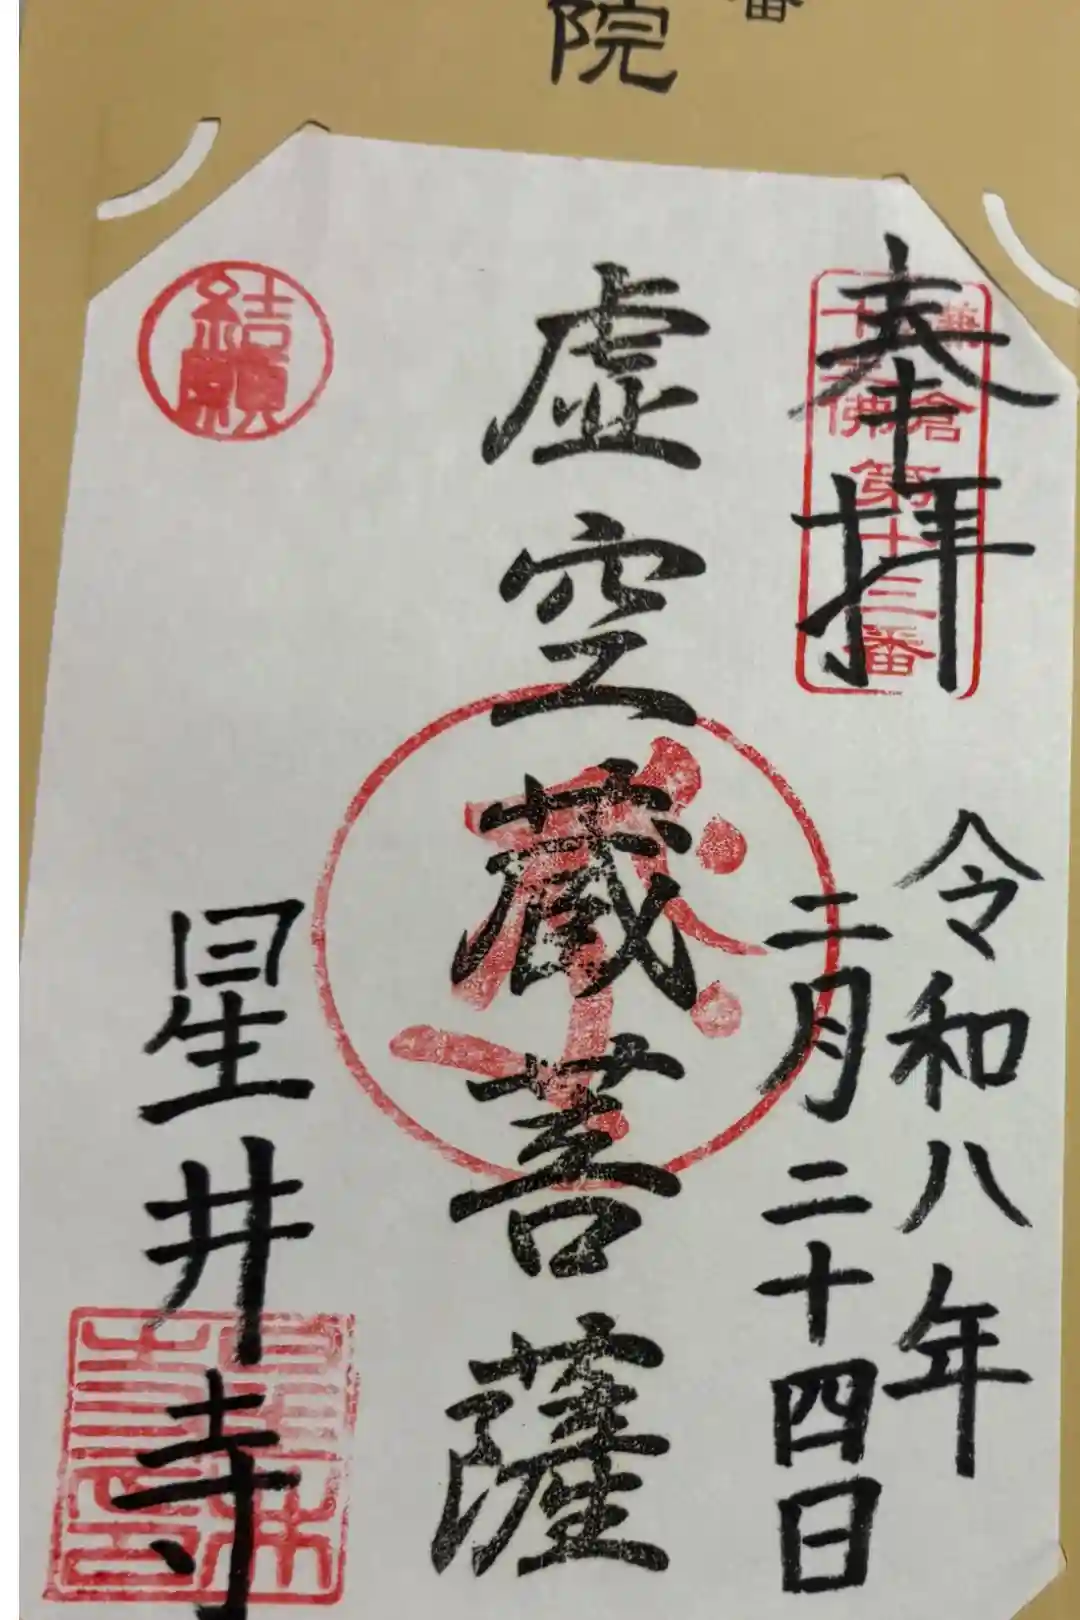 番
院
奉拝
鎌倉
十三佛
第十三番
令和八年
二月二十四日
虚空蔵菩薩
結願
星井寺